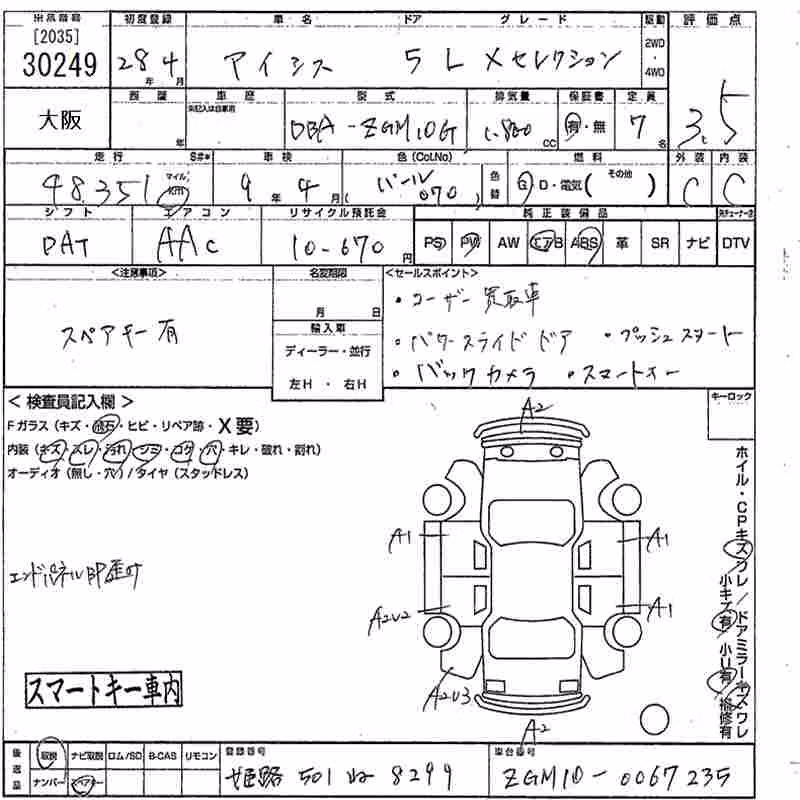 出品番号 初度登録 車名 ドア グレード 駆動 評価点
[2035]
30249 28年4月 アイシス 5 L Xセレクション 2WD・4WD 3.5
大阪 車歴 型式 排気量 保証書 定員
未記入は自家用
年 DBA-ZGM10G 1.800cc 有・無 7名
走行 S#* 車検 色(Col.No) 燃料 外装 内装
48.351 マイル km 9年4月 (パール 070) 色替 G・D・電気( その他 ) C C
シフト エアコン リサイクル預託金 純正装備品
DAT AAC 10-670円 PS PW AW エアB ABS 革 SR ナビ DTV
<注意事項> 名変期限 <セールスポイント>
スペアキー有 月 日 ・ユーザー買取車
輸入車 ・パワースライドドア ・プッシュスタート
ディーラー・並行 ・バックカメラ ・スマートキー
左H・右H
<検査員記入欄> キーロック
Fガラス(キズ・飛石・ヒビ・リペア跡・X要)
内装(キズ・スレ・汚れ・シミ・コゲ・穴・キレ・破れ・割れ)
オーディオ(無し・穴)/タイヤ(スタッドレス)
A2
A1 A1
エンドパネルBP歪み
A2U2 A1
A2U3
A2
ホイル・CPキズワレ/ドアミラーキズワレ
小キズ有 小U有 補修有
スマートキー車内
後送品 取説 ナビ取説 ロム/SD B-CAS リモコン 登録番号 車台番号
ナンバー スペアキー 姫路 501 ね 8299 ZGM10-0067235